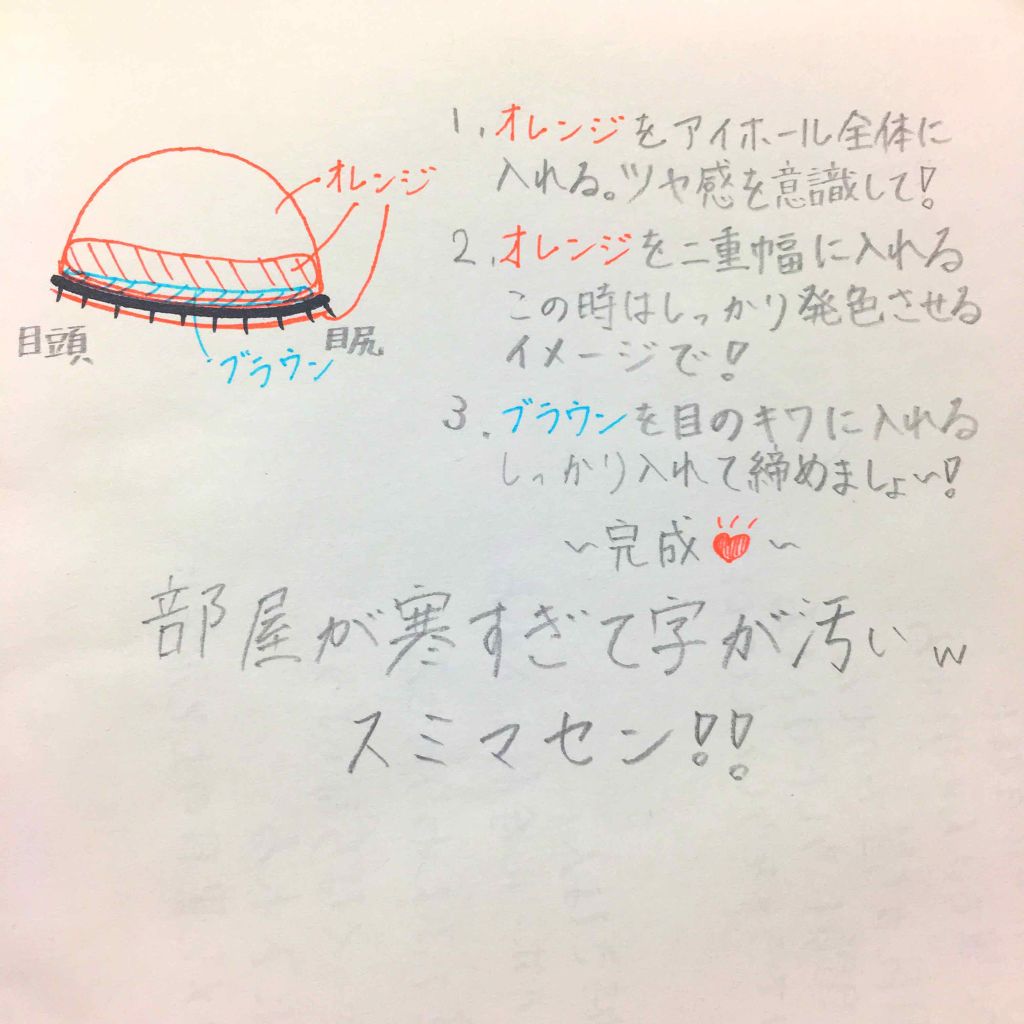 オレンジ
目頭
目尻
ブラウン
1. オレンジをアイホール全体に
入れる。ツヤ感を意識して!
2. オレンジを二重幅に入れる
この時はしっかり発色させる
イメージで!
3. ブラウンを目のキワに入れる
しっかり入れて締めましょ〜!
〜完成❤〜
部屋が寒すぎて字が汚いw
スミマセン!!